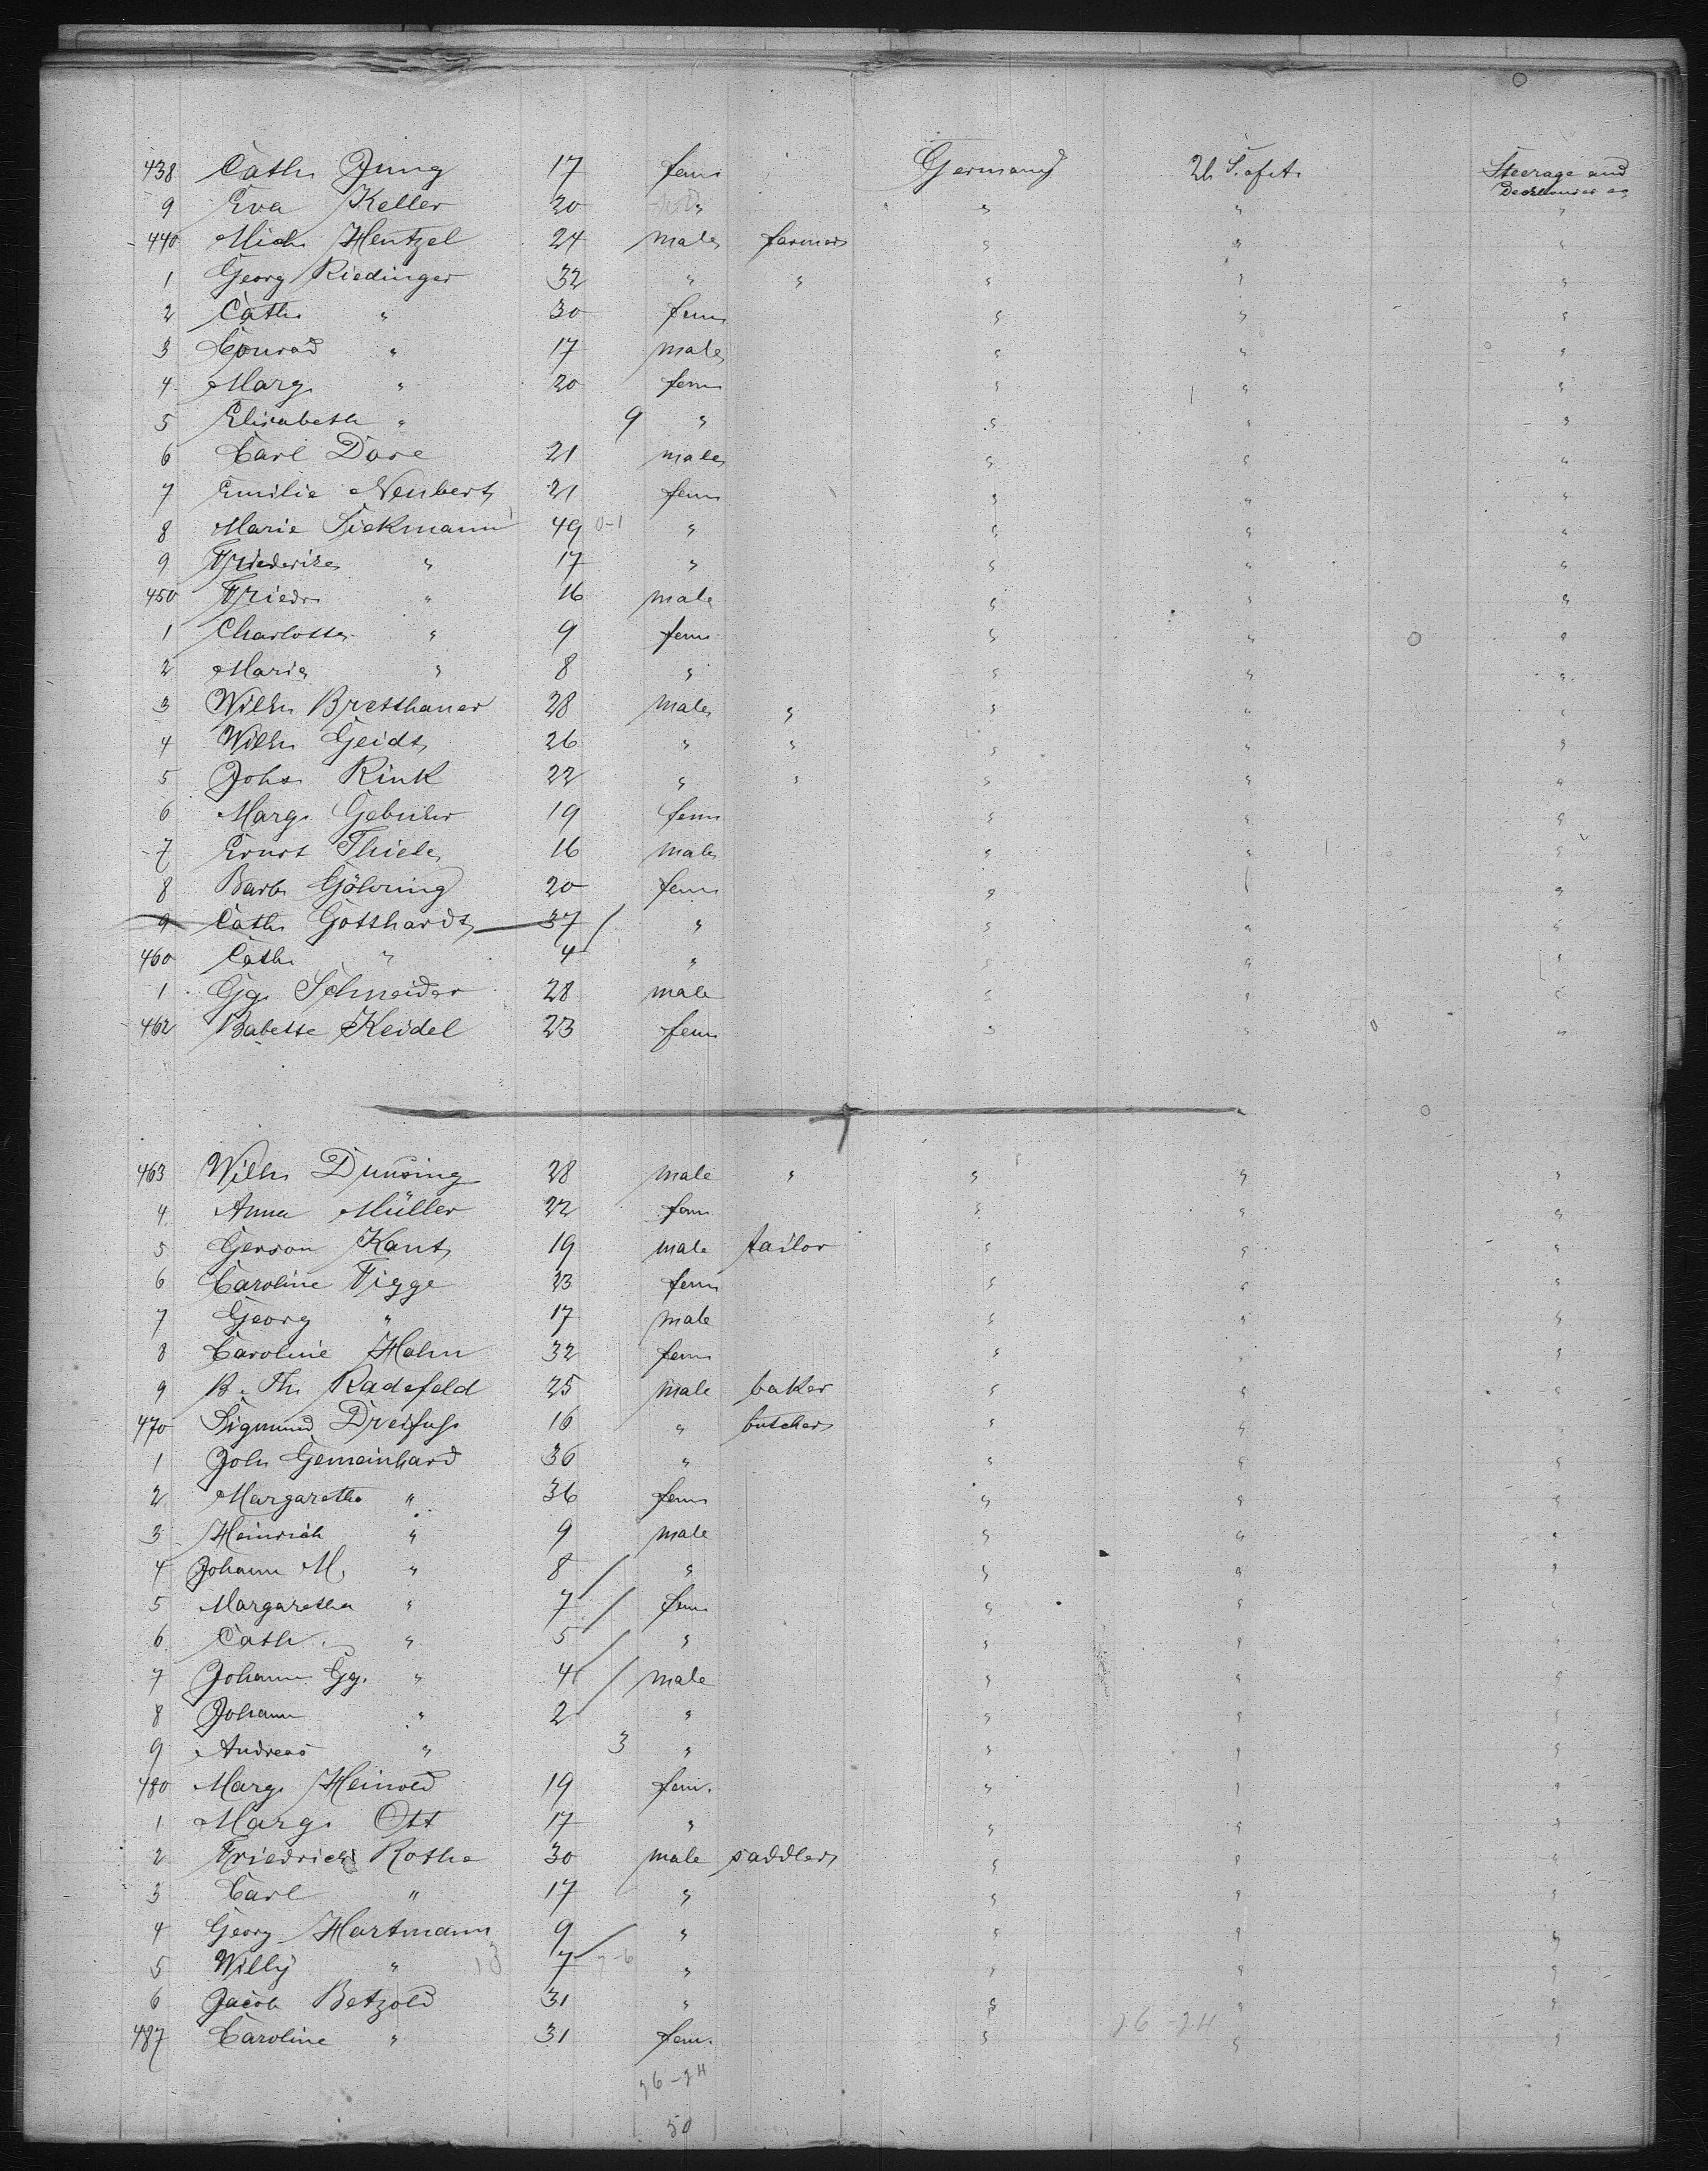 438 Cath Jung 17 fem Germany U. S. of A. Steerage and
9 Eva Keller 20 " " " "
440 Mich Hentzel 24 male farmer " " "
1 Georg Riedinger 32 " " " " "
2 Cath " 30 fem " " "
3 Conrad " 17 male " " "
4 Marg. " 20 fem " " "
5 Elisabeth " 9 " " " "
6 Carl Dore 21 male " " "
7 Emilie Neubert 21 fem " " "
8 Marie Siekmann 49 0-1 " " " "
9 Friederike " 17 " " " "
450 Friedr " 16 male " " "
1 Charlotte " 9 fem " " "
2 Marie " 8 " " " "
3 Wilh Bretthauer 28 male " " " "
4 Wilh Geidt 26 " " " " "
5 Johs Rink 22 " " " " "
6 Marg. 19 fem " " "
7 Ernst Thiele 16 male " " "
8 Barb Göhring 20 fem " " "
9 Cath Gotthardt 37 " " " "
460 Cath " 4 " " " "
1 Gg. Schneider 28 male " " "
462 Babette Keidel 23 fem " " "
463 Wilh Dunsing 28 male " " " "
4 Anna Müller 22 fem " " "
5 Gerson Kant 19 male tailor " " "
6 Caroline Figge 23 fem " " "
7 Georg " 17 male " " "
8 Caroline Hahn 32 fem " " "
9 B. Th. Radefeld 25 male baker " " "
470 Sigmund Dreifuss 16 " butcher " " "
1 Joh Gemeinhard 36 " " " "
2 Margaretha " 36 fem " " "
3 Heinrich " 9 male " " "
4 Johann M. " 8 " " " "
5 Margaretha " 7 fem " " "
6 Cath. " 5 " " " "
7 Johann Gg. " 4 male " " "
8 Johann " 2 " " " "
9 Andreas " 3 " " " "
480 Marg. Heinold 19 fem. " " "
1 Marg. Ott 17 " " " "
2 Friedrich Rothe 30 male saddler " " "
3 Carl " 17 " " " "
4 Georg Hartmann 9 " " " "
5 Willy " 13 7 7-6 " " " "
6 Jacob Betzold 31 " " " "
487 Caroline " 31 fem. " " "
26-24
26-24
50